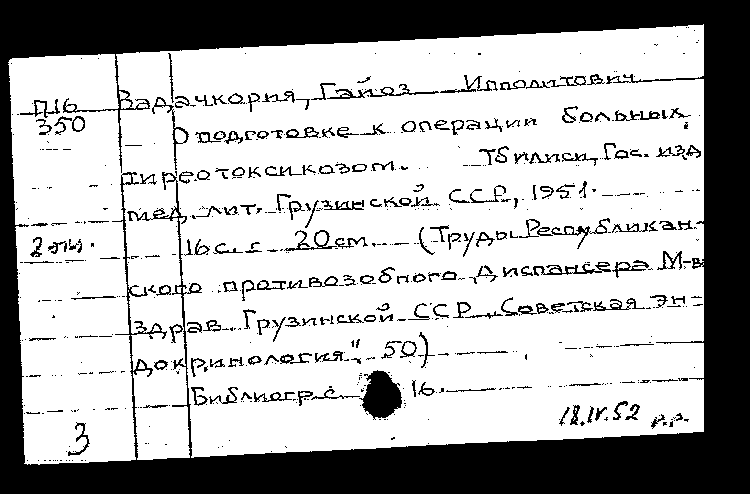 П16 Вадачкория, Гайоз Ипполитович
350 О подготовке к операции больных
тиреотоксикозом. Тбилиси, Гос. изд.
мед. лит. Грузинской ССР, 1951.
2 экз. 16 с. 20 см. (Труды Республикан-
ского противозобного диспансера М-ва
здрав. Грузинской ССР „Советская эн-
докринология", 50)
Библиогр с. 16.
3 18.IV.52 р.р.